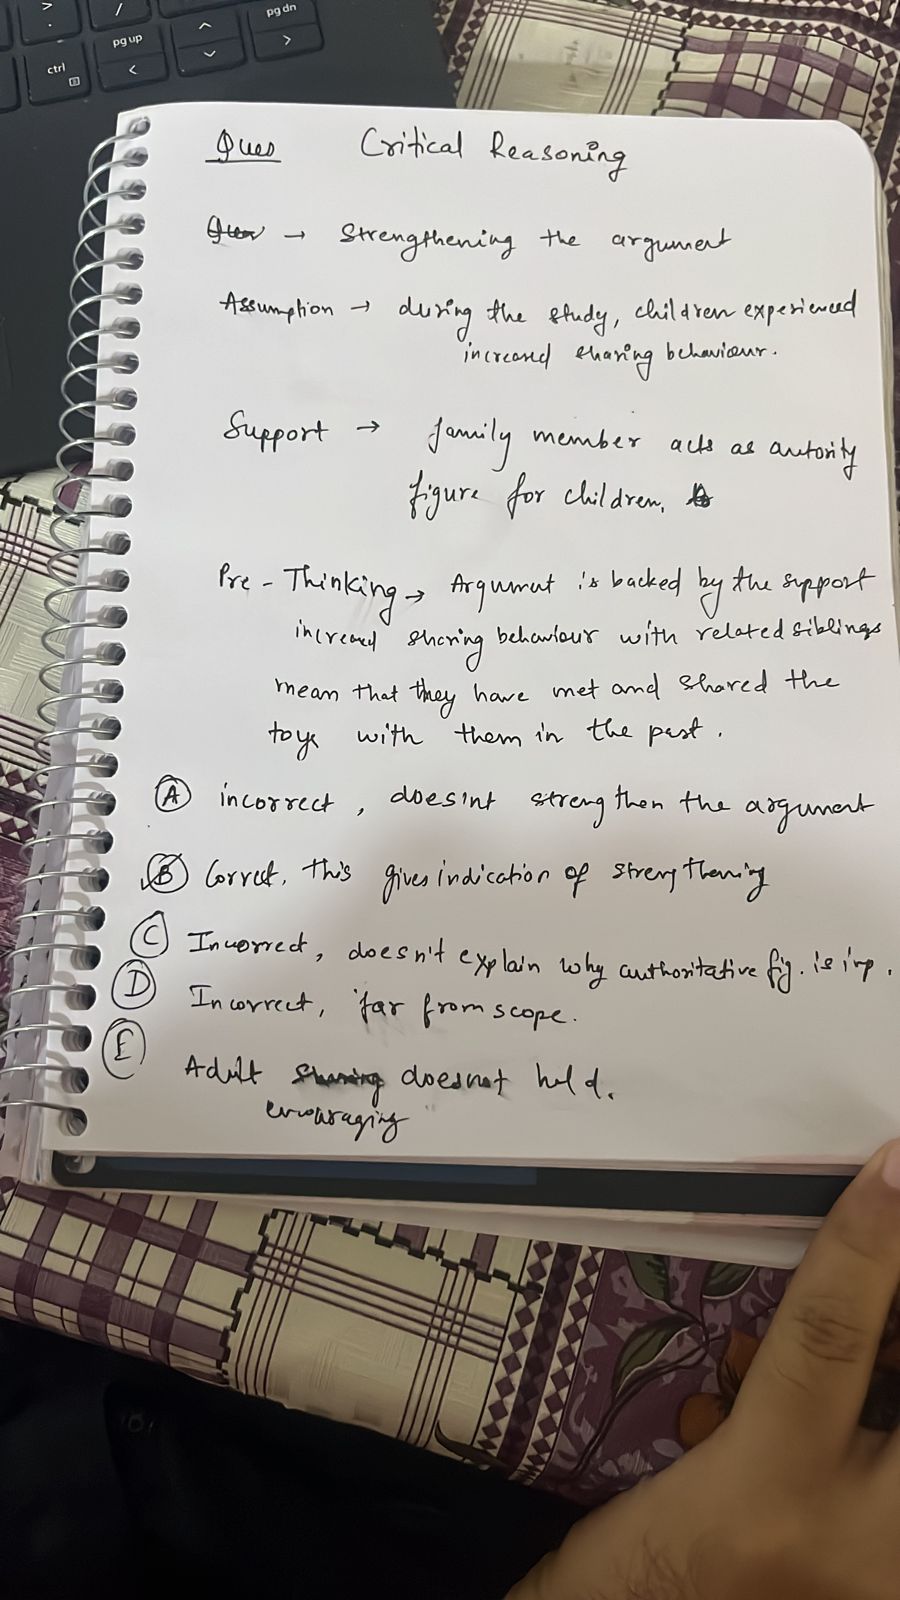 >
.
/
pg up
<
pg dn
>
ctrl
Ques Critical Reasoning
Ques → Strengthening the argument
Assumption → during the study, children experienced
increased sharing behaviour.
Support → family member acts as autority
figure for children.
Pre - Thinking → Argumut is backed by the support
increased sharing behaviour with related siblings
mean that they have met and shared the
toys with them in the past.
A incorrect, does'nt strengthen the argument
B Correct. this gives indication of strengthening
C Incorrect, doesn't explain why authoritative fig. is imp.
D Incorrect, far from scope.
E
Adult sharing doesnot hold.
encouraging